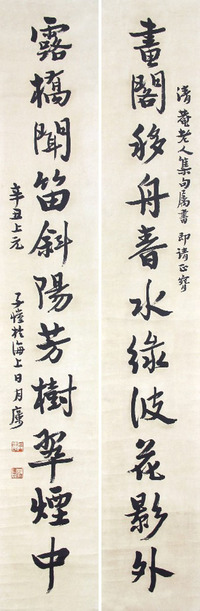 清菴老人集句属書 即请正腕
畫閣移舟春水綠波花影外
霧橋聞笛斜陽芳樹翠煙中
辛丑上元
子愷於海上日月廔